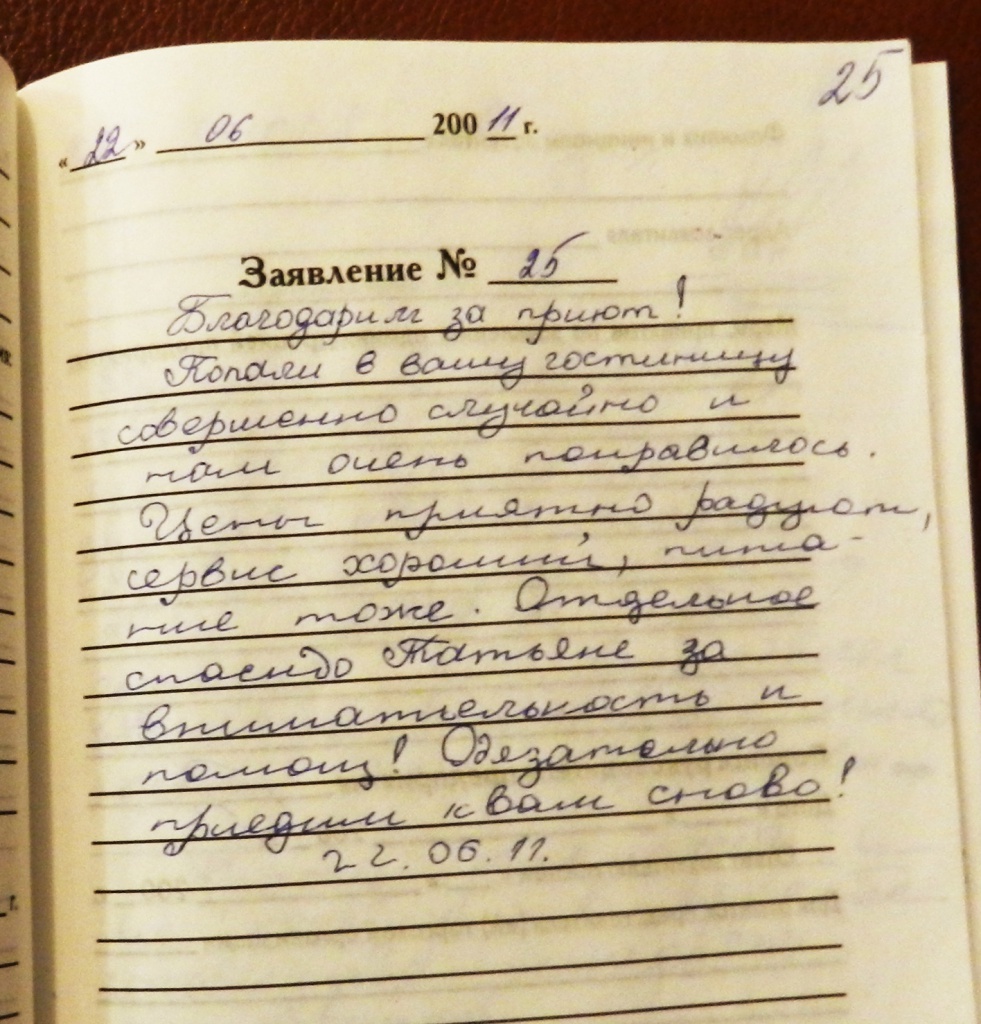 25
« 22 » 06 200 11 г.
Заявление № 25
Благодарим за приют!
Попали в вашу гостиницу
совершенно случайно и
нам очень понравилось.
Цены приятно радуют,
сервис хороший, пита-
ние тоже. Отдельное
спасибо Татьяне за
внимательность и
помощь! Обязательно
приедим к вам сново!
22.06.11.